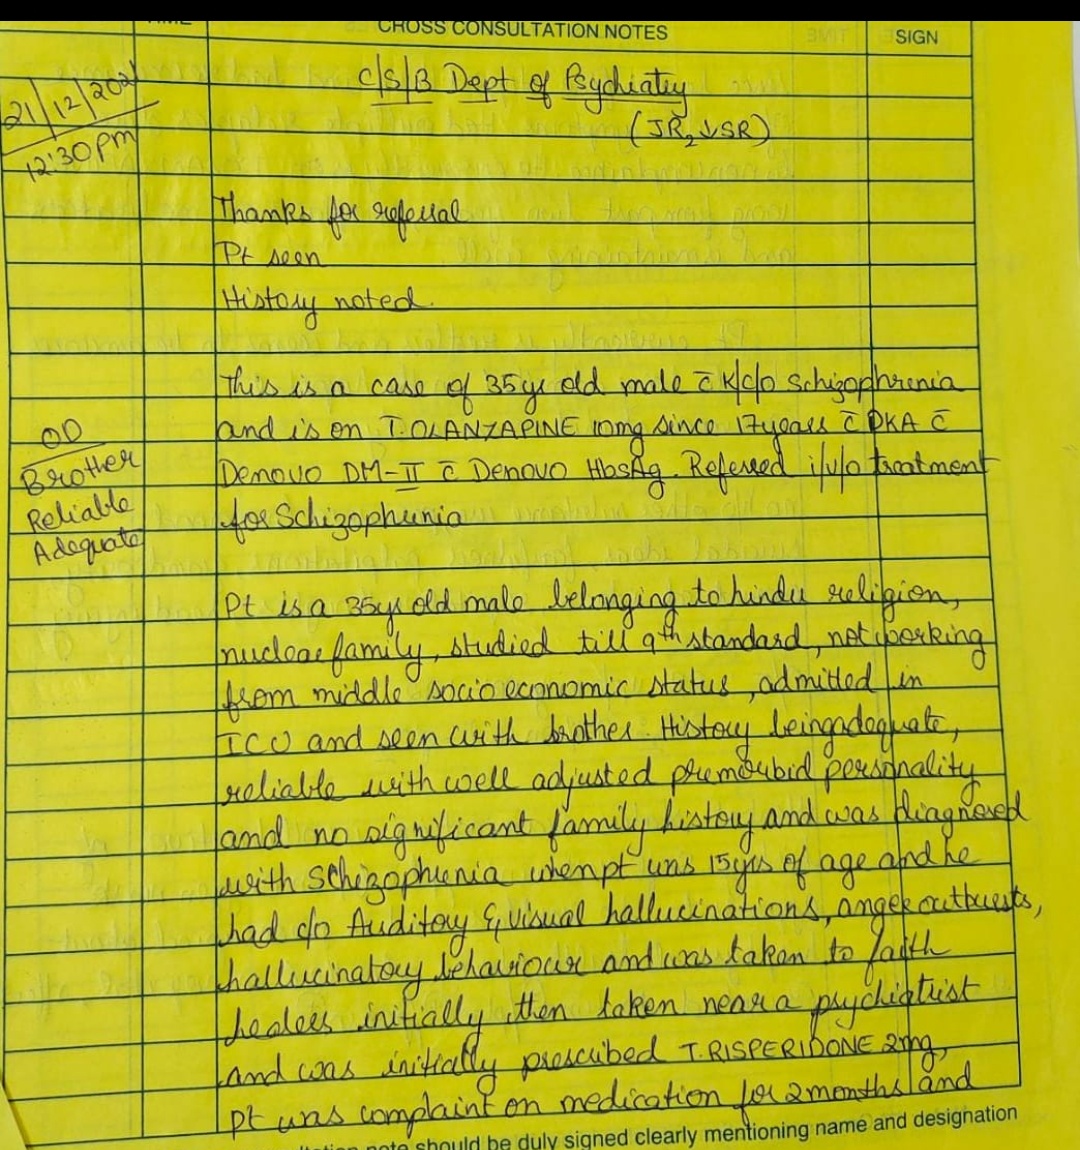 CROSS CONSULTATION NOTES
SIGN
21/12/2021
12:30 pm
C/S/B Dept of Psychiatry
(JR2 ↓ SR)
Thanks for referral
Pt seen
History noted.
This is a case of 35yr old male c̄ K/c/o Schizophrenia
and is on T.OLANZAPINE 10mg since 17years c̄ DKA c̄
Denovo DM-II c̄ Denovo HbsAg. Referred i/v/o treatment
for Schizophrenia
OD
Brother
Reliable
Adequate
Pt is a 35yr old male belonging to hindu religion,
nuclear family, studied till 9th standard, not working
from middle socio economic status, admitted in
ICU and seen with brother. History being adequate,
reliable with well adjusted premorbid personality
and no significant family history and was diagnosed
with Schizophrenia when pt was 15yrs of age and he
had c/o Auditory & visual hallucinations, anger outbursts,
hallucinatory behaviour and was taken to faith
healers initially then taken near a psychiatrist
and was initially prescribed T.RISPERIDONE 2mg,
Pt was complaint on medication for 2months and
note should be duly signed clearly mentioning name and designation